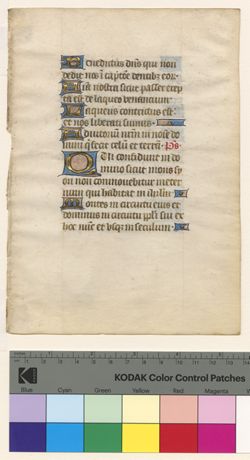 Benedictus dñs qui non
dedit nos ĩ captõe dentibz eor.
Aĩa nostra sicut passer erep
ta est de laqueo venancium
Laqueus contritus est
et nos liberati sumus
Adiutoriũ nrm̃ in noĩe do
mini q̃ fecit celũ et terrã. Ps
Qui confidunt in do
mino sicut mons sy
on non commovebitur in eter
num qui habitat in ihrlm̃
Montes in circuitu eius et
dominus in circuitu ppl̃i sui ex
hoc nũc et usqz in seculum
Kodak
KODAK Color Control Patches
Blue Cyan Green Yellow Red Magenta